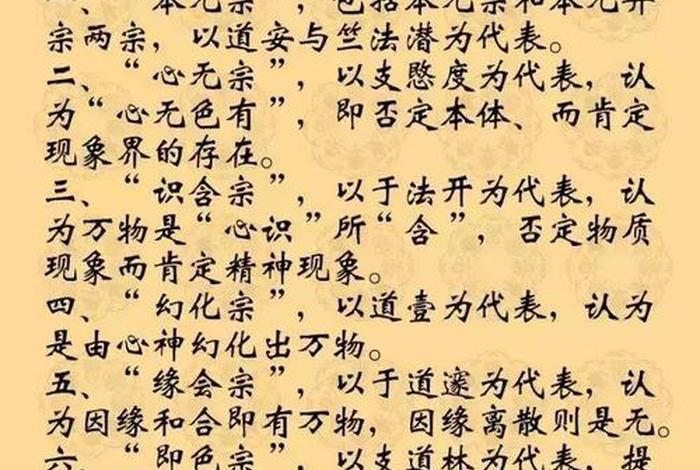 一、“本无宗”，包括本无宗和本无异
宗两宗，以道安与竺法潜为代表。
二、“心无宗”，以支愍度为代表，认
为“心无色有”，即否定本体、而肯定
现象界的存在。
三、“识含宗”，以于法开为代表，认
为万物是“心识”所“含”，否定物质
现象而肯定精神现象。
四、“幻化宗”，以道壹为代表，认为
是由心神幻化出万物。
五、“缘会宗”，以于道邃为代表，认
为因缘和合即有万物，因缘离散则是无。
六、“即色宗”，以支道林为代表，提